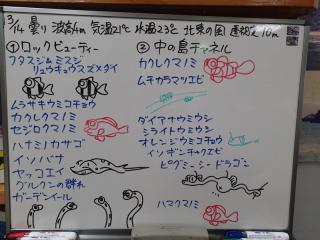 3/14 曇り 波高4m 気温21℃ 水温23℃ 北東の風 透視度10m
①ロックビューティー
フタスジ&ミスジ
リュウキュウスズメダイ
ムラサキウミコチョウ
カクレクマノミ
セジロクマノミ
ハナミノカサゴ
イソバナ
ヤッコエイ
グルクンの群れ
ガーデンイール
② 中の島チャネル
カクレクマノミ
ムチカラマツエビ
ダイアナウミウシ
シライトウミウシ
オレンジウミコチョウ
イソギンチャクエビ
ピグミーシードラゴン
ハマクマノミ